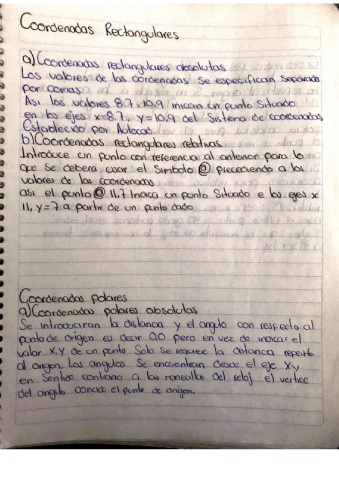 Coordenadas Rectangulares
a) Coordenadas rectangulares absolutas
Los valores de las coordenadas se especifican separados
por comas
Asi los valores 8.7, 10.9 indican un punto situado
en los ejes x=8.7, y=10.9 del Sistema de coordenadas
Establecido por Autocad.
b) Coordenadas rectangulares relativas
Introduce un punto con referencia al anterior para lo
que se debera usar el Simbolo @ precediendo a los
valores de las coordenadas
asi el punto @ 11,7 indica un punto Situado e los ejes x
11, y=7 a partir de un punto dado
Coordenadas polares
a) Coordenadas polares absolutas
Se introduciran la distancia y el angulo con respecto al
punto de origen es decir 0,0 pero en vez de indicar el
valor X,Y de un punto Solo se requiere la distancia respecto
al origen. Los angulos Se encuentran desde el eje X y
en Sentido contrario a las manecillas del reloj el vertice
del angulo coincide el punto de origen.